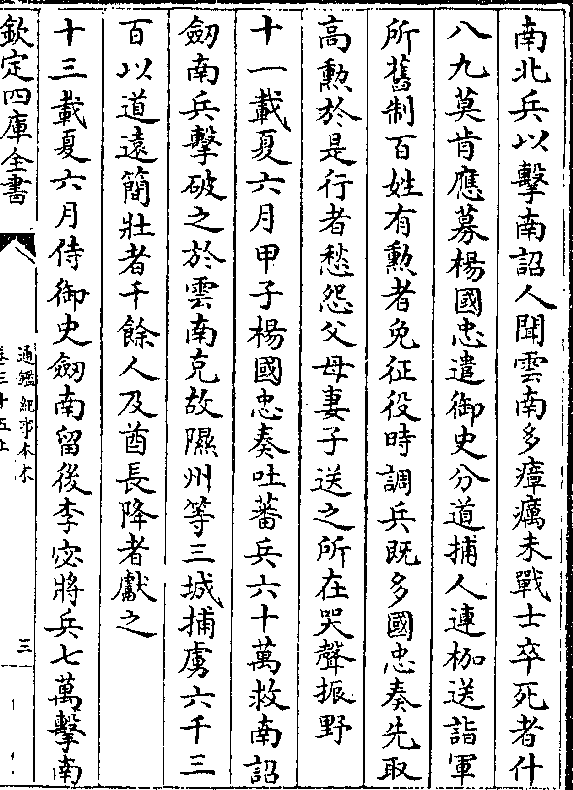 南北兵以擊南詔人聞雲南多瘴癘未戰士卒死者什
八九莫肯應募楊國忠遣御史分道捕人連枷送詣軍
所舊制百姓有勲者免征役時調兵既多國忠奏先取
高勲於是行者愁怨父母妻子送之所在哭聲振野
十一載夏六月甲子楊國忠奏吐蕃兵六十萬救南詔
劒南兵擊破之於雲南克故隰州等三城捕虜六千三
百以道遠簡壯者千餘人及酋長降者獻之
十三載夏六月侍御史劒南留後李宓將兵七萬擊南
欽定四庫全書
通鑑紀事本末
卷三十五上
三